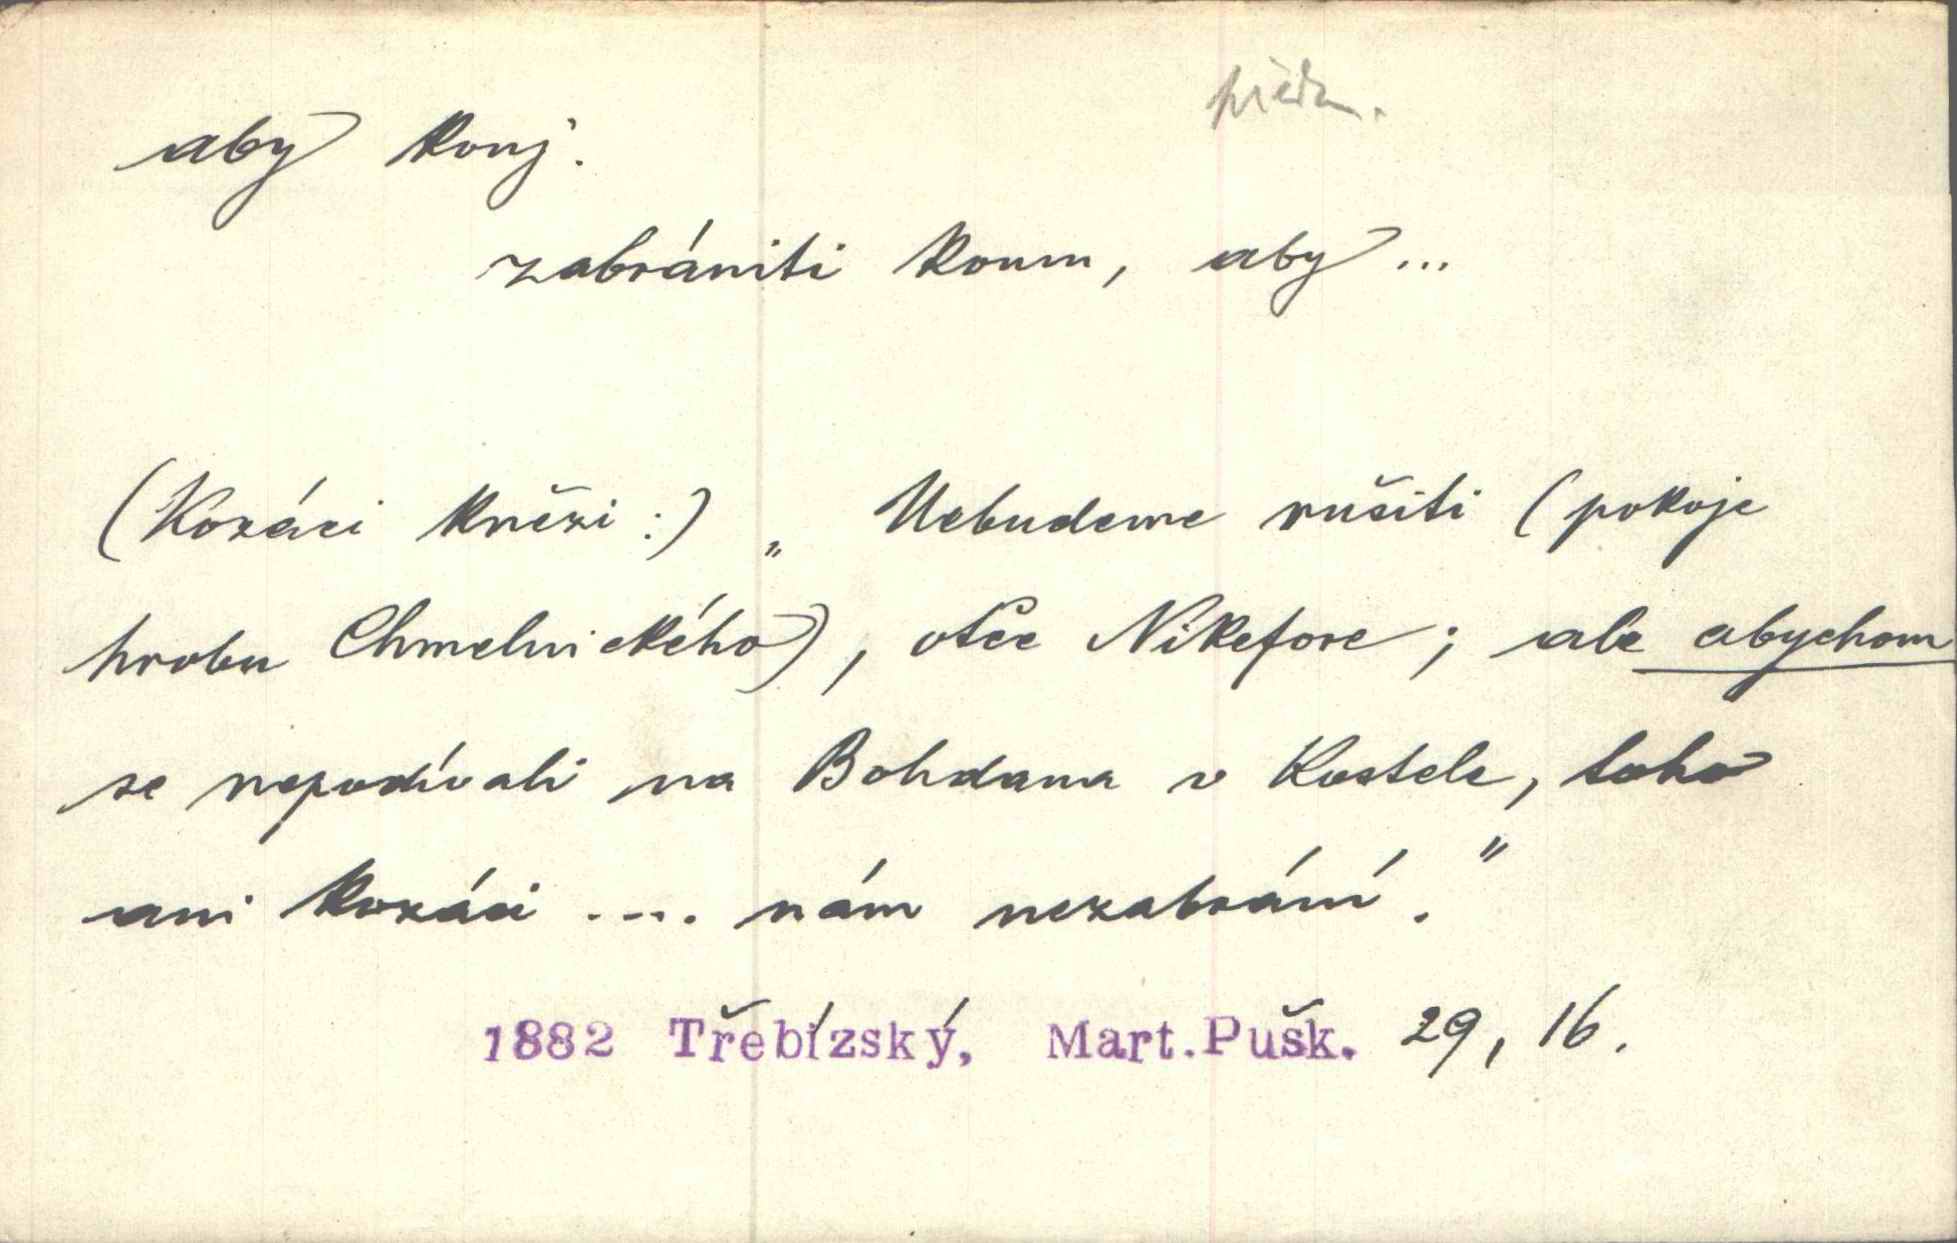 předm.
aby konj.
zabrániti komu, aby ...
(Kozáci knězi :) „ Nebudeme rušiti (pokoje
hrobu Chmelnického), otče Nikefore; ale abychom
se nepodívali na Bohdana v kostele, toho
ani kozáci .... nám nezabrání."
1882 Třebízský, Mart. Pušk. 29, 16.